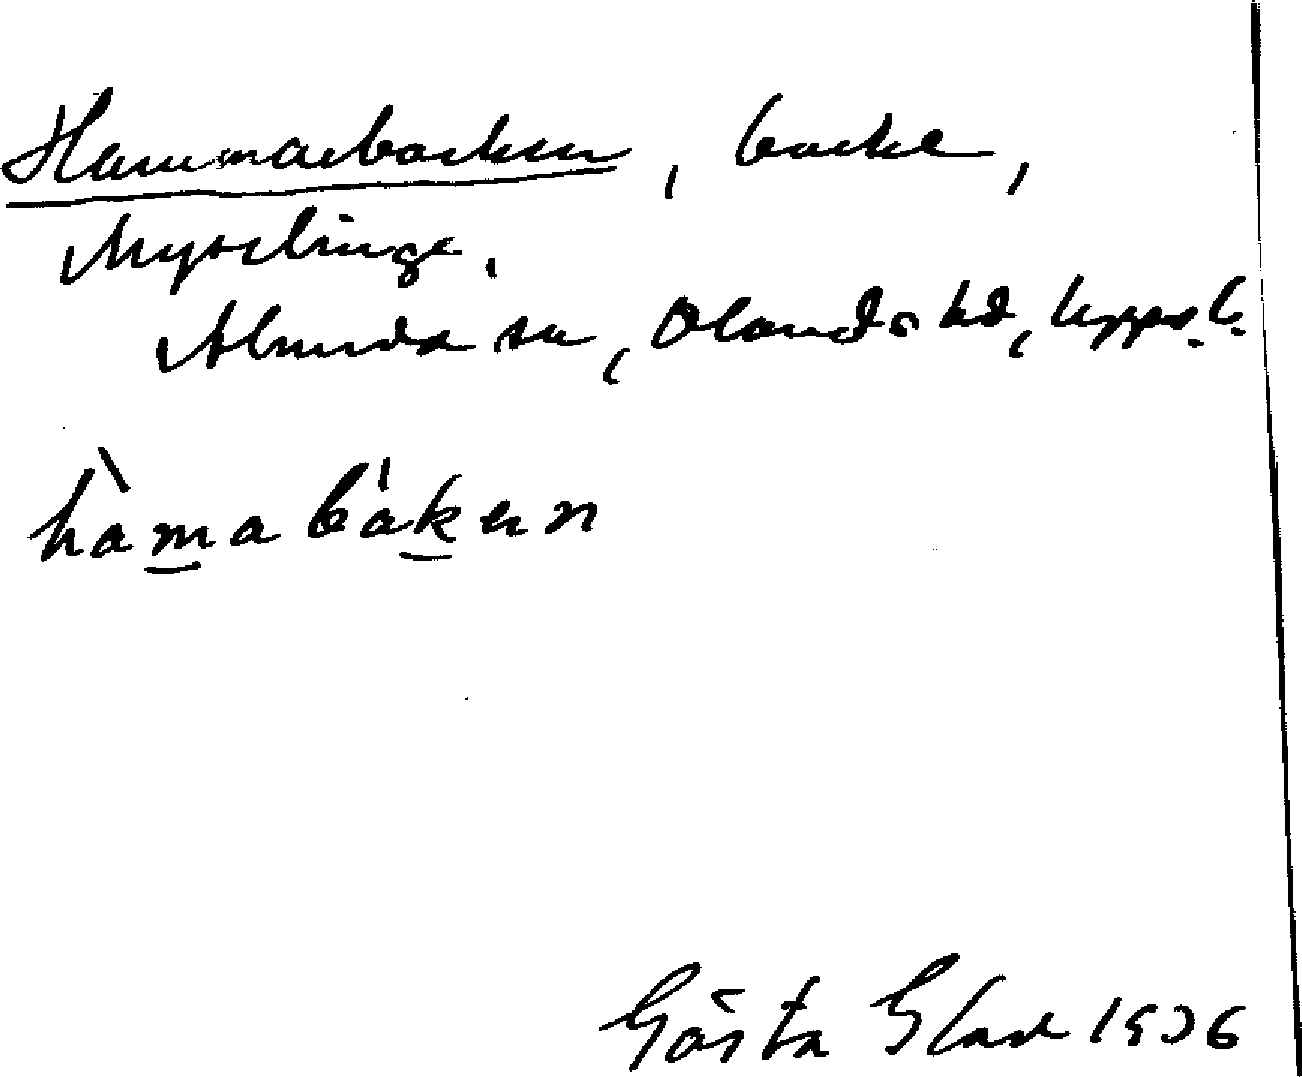 Hammarbacken, backe,
Myrelinge.
Alunda sn, Olands hd, Upps.l.
hàmabákenn
Gösta Glad 1936